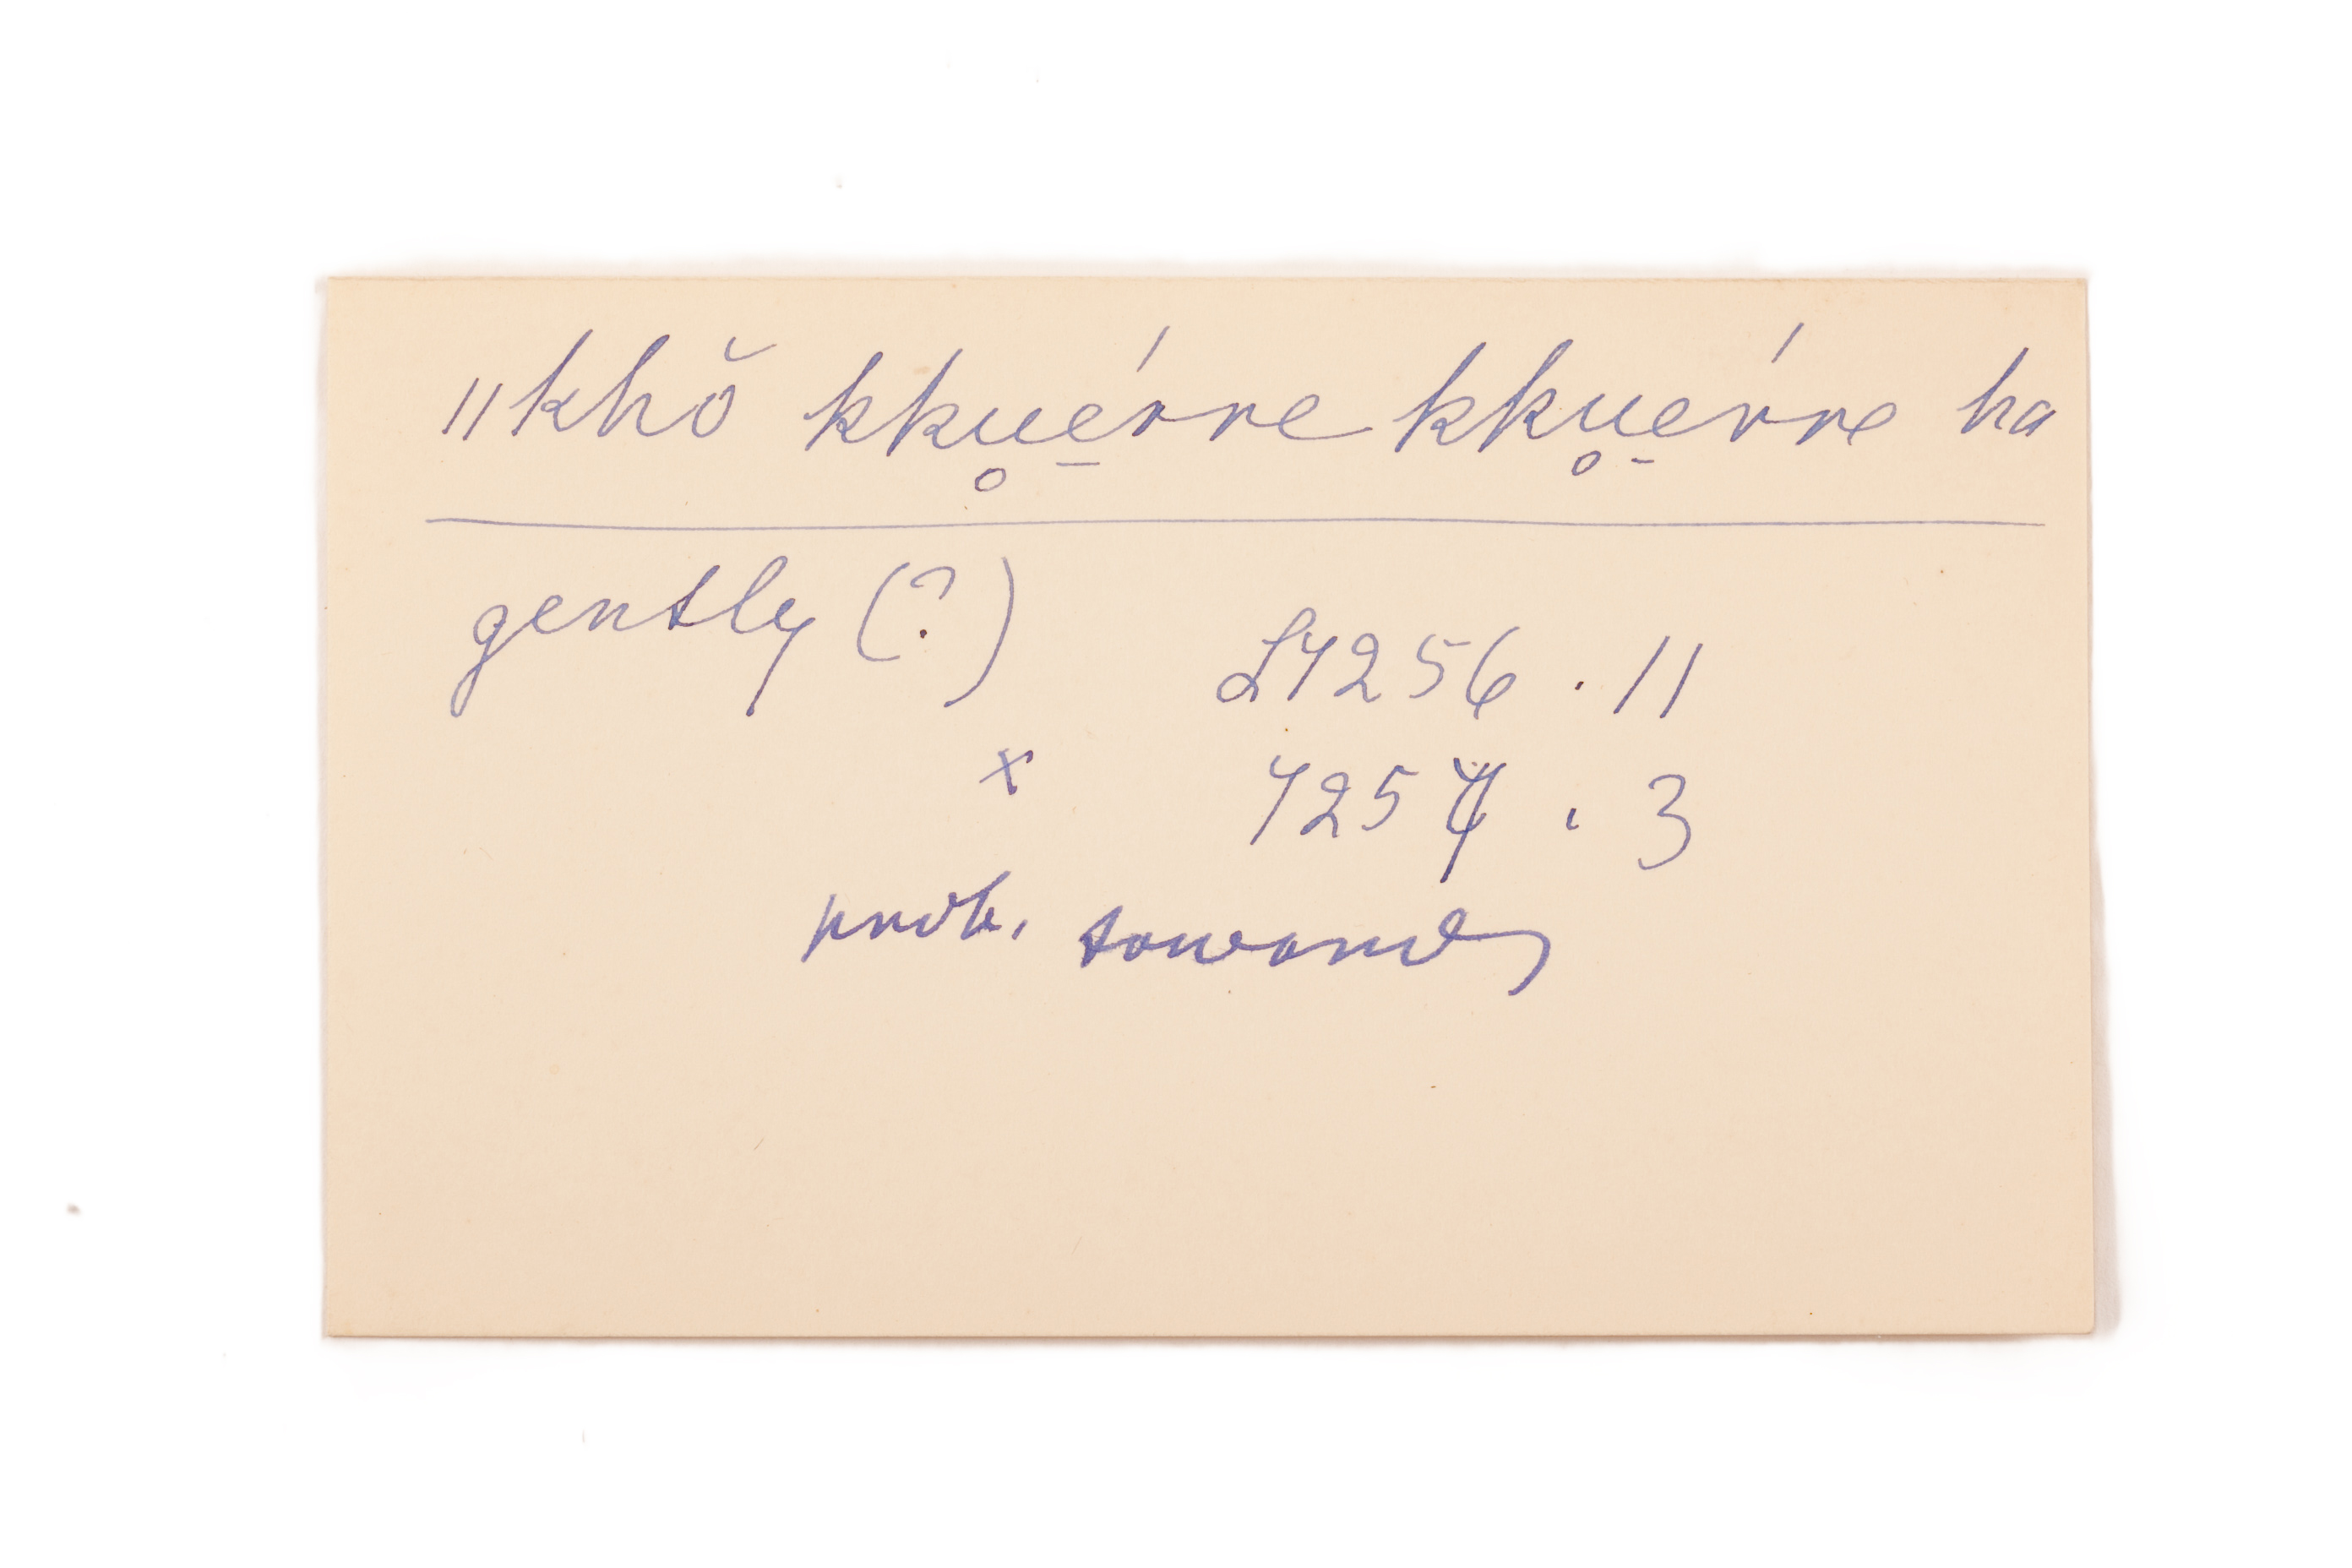 ǁkhŏ kku̥é̱rre kku̥é̱rre ha
gently (?) L7256 . 11
x 7257 . 3
prob. towards